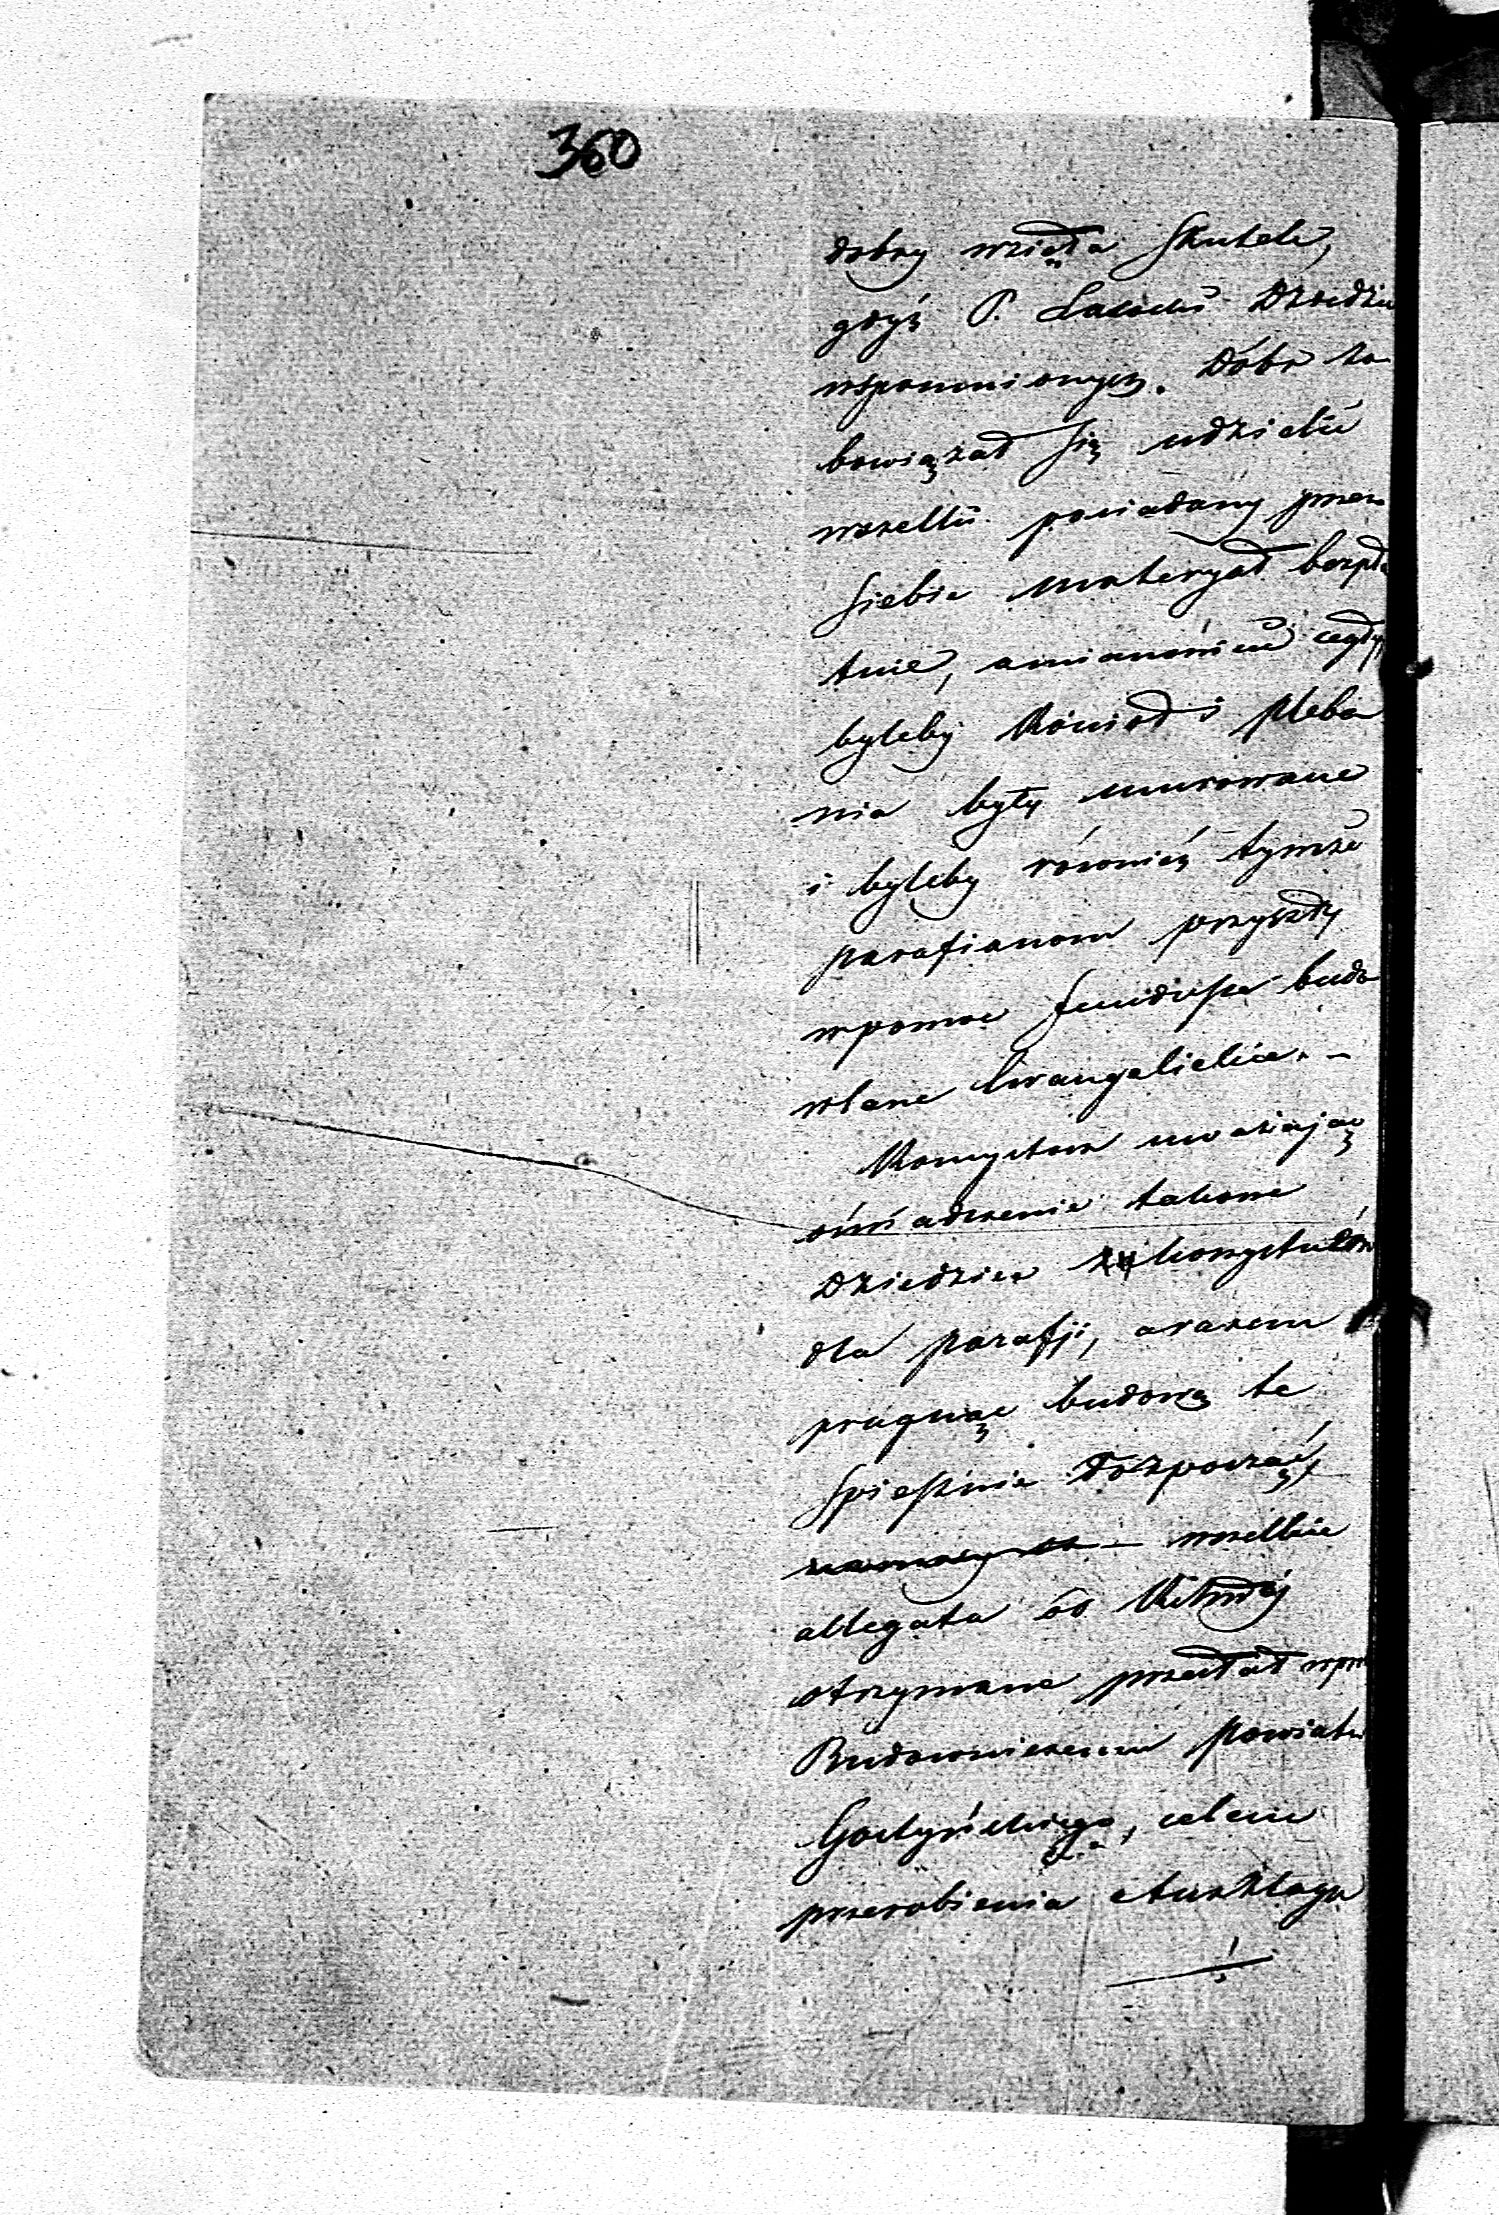 360
dobry wzięła skutek,
gdyż P. Lasocki Dziedzic
wspomnionych Dóbr zo
bowiązał się udzielić
wszelki posiadany przez
siebie materyał bezpła
tnie, a mianowicie cegły,
byleby Kościół i pleba
nia były murowane
i byleby również tymże
parafianom przyszły
w pomoc fundusze budo
wlane Ewangelickie. –
Konsystorz uważając
oświadczenie takowe
Dziedzica za korzystne
dla parafji, a razem
pragnąc budowę te
spiesznie rozpocząć,
wszelkie
allegata od
otrzymane przesłał wprost
Budowniczemu Powiatu
Gostyńskiego, celem
przerobienia Anszlagu